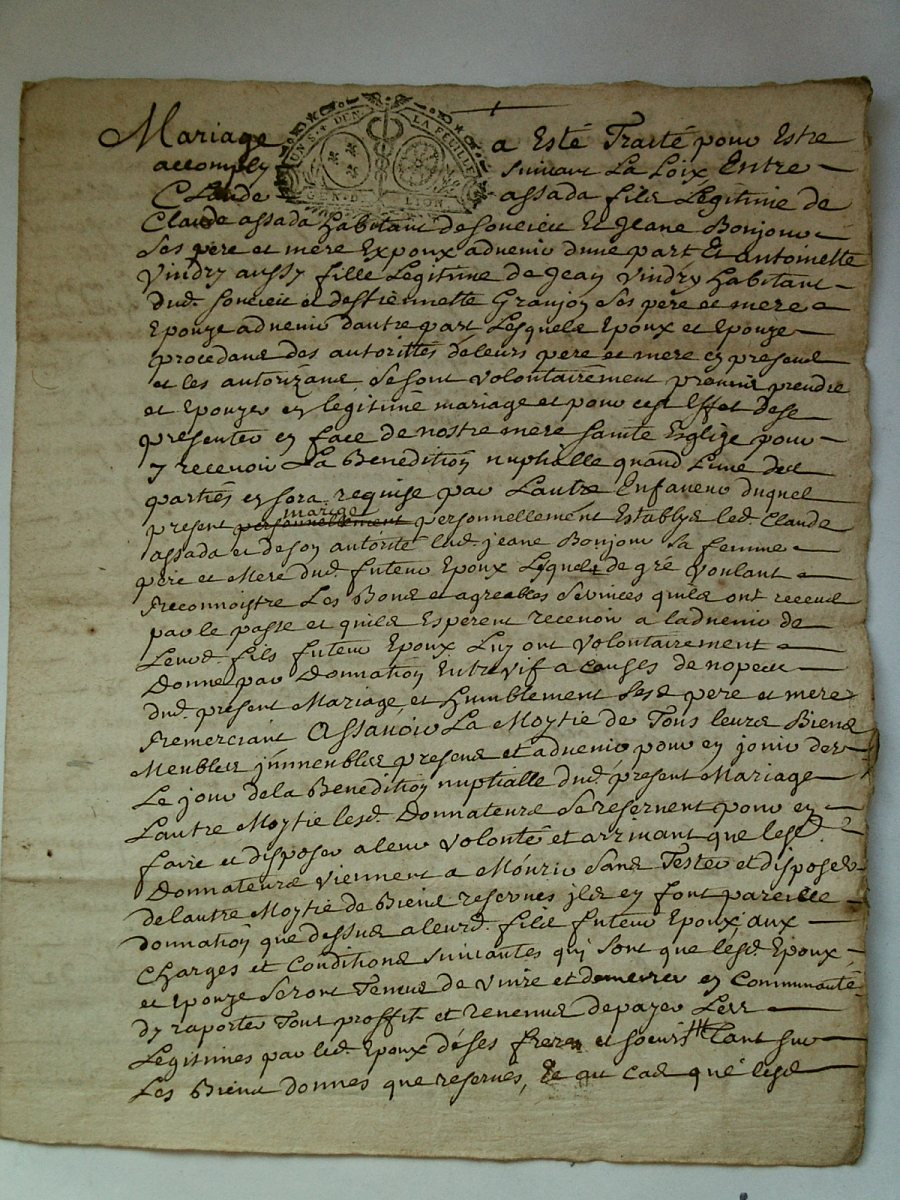 Mariage a Esté Traité pour Estre
accomply suivant La Loix Entre
Claude assada fils Legitime de
Claude assada habitant de soucieu Et Jeane Bonjour
Ses pere et mere Expoux advenir d'une part Et antoinette
Vindry aussy fille Legitime de Jean Vindry habitant
dud. soucieu et d'estiennette Granjon Ses pere et mere
Epouze advenir dautre part Lesquels Epoux et Epouze
procedans des autorittés de leurs pere et mere ey presens
et les autorizans se sont volontairement promis prendre
et Epouzer ey legitime mariage et pour cest Effet de se
presenter ey face de nostre mere sainte Eglize pour
y recevoir La Benedition nuptialle quand L'une des
parties ey sera requise par Lautre Enfaveur duquel
present mariage personnellement personnellement Establys led. Claude
assada et de soy autorité lad. jeane Bonjour sa femme
pere et Mere dud. futeur Epoux Lesquels de gré voulant
Reconnoistre Les Bons et agreables Services quils ont receus
par le passe et quils Esperent recevoir a ladvenir de
Leurd. fils futeur Epoux Luy ont volontairement
Donne par Donnation Entrevif a causes de nopces
dud. present Mariage et humblement Sesd pere et mere
Remerciant Assavoir La Moytie de Tous leurs Biens
Meubles jmmeubles presens et advenir pour ey jouir des
Le jour de la Benedition nuptialle dud. present Mariage
Lautre Moytie lesd. Donnateurs se reservent pour ey
faire et disposer a leur volonté et arrivant que lesd
Donnateurs viennent a Mourir Sans Tester et disposer
de lautre Moytie de Biens reservés jls ey font pareille
donnation que dessus a leurd. fils futeur Epoux aux
Charges et Conditions suivantes qui sont que lesd. Epoux
et Epouze seront Tenus de vivre et demeurer ey Communauté
dy raporter Tous proffit et revenus de payer Les
Legitimes par led. Epoux de ses freres et soeurs tant sur
Les Biens donnes que reserves, Et au cas que lesd
UN S. + DEN. LA FEUILLE
LION